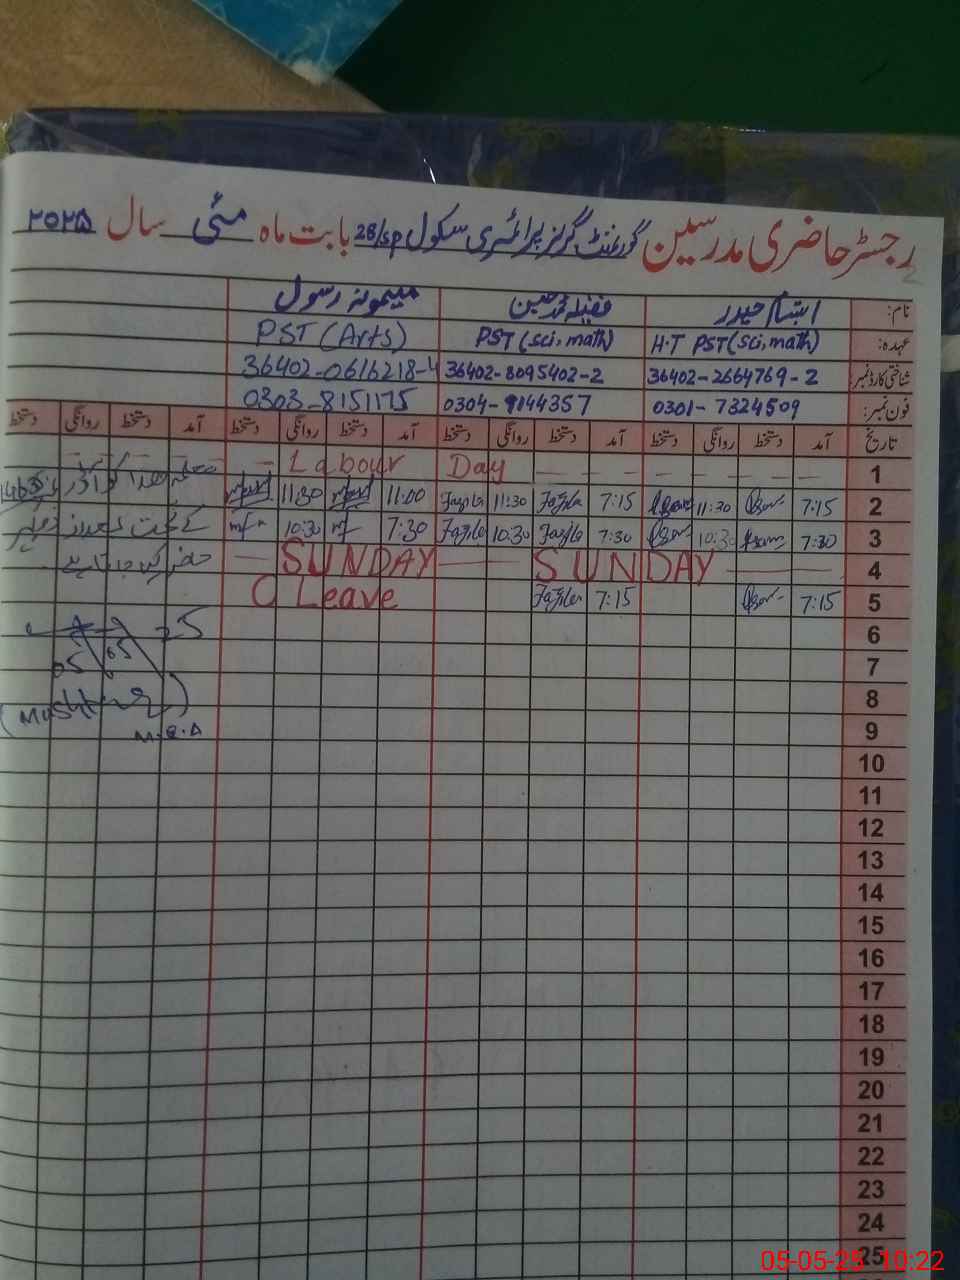 رجسٹر حاضری مدرسین گورنمنٹ گرلز پرائمری سکول 28/SP بابت ماہ مئی سال ۲۰۲۵
نام: میمونہ رسول
عہدہ: H.T PST(sci,math) PST(sci,math) PST(Arts)
شناختی کارڈ نمبر: 36402-2664769-2 36402-8095402-2 36402-0616218-4
فون نمبر: 0301-7324509 0304-9144357 0303-8151175
تاریخ آمد دستخط روانگی دستخط آمد دستخط روانگی دستخط آمد دستخط روانگی دستخط آمد دستخط روانگی دستخط
1 Labour Day
2 7:15 11:30 7:15 Fazila 11:30 Fazila 11:00 11:30
3 7:30 10:30 7:30 Fazila 10:30 Fazila 7:30 mf 10:30
4 SUNDAY SUNDAY
5 7:15 7:15 Fazila C Leave
6
7
8
9
10
11
12
13
14
15
16
17
18
19
20
21
22
23
24
25
05-05-25 10:22